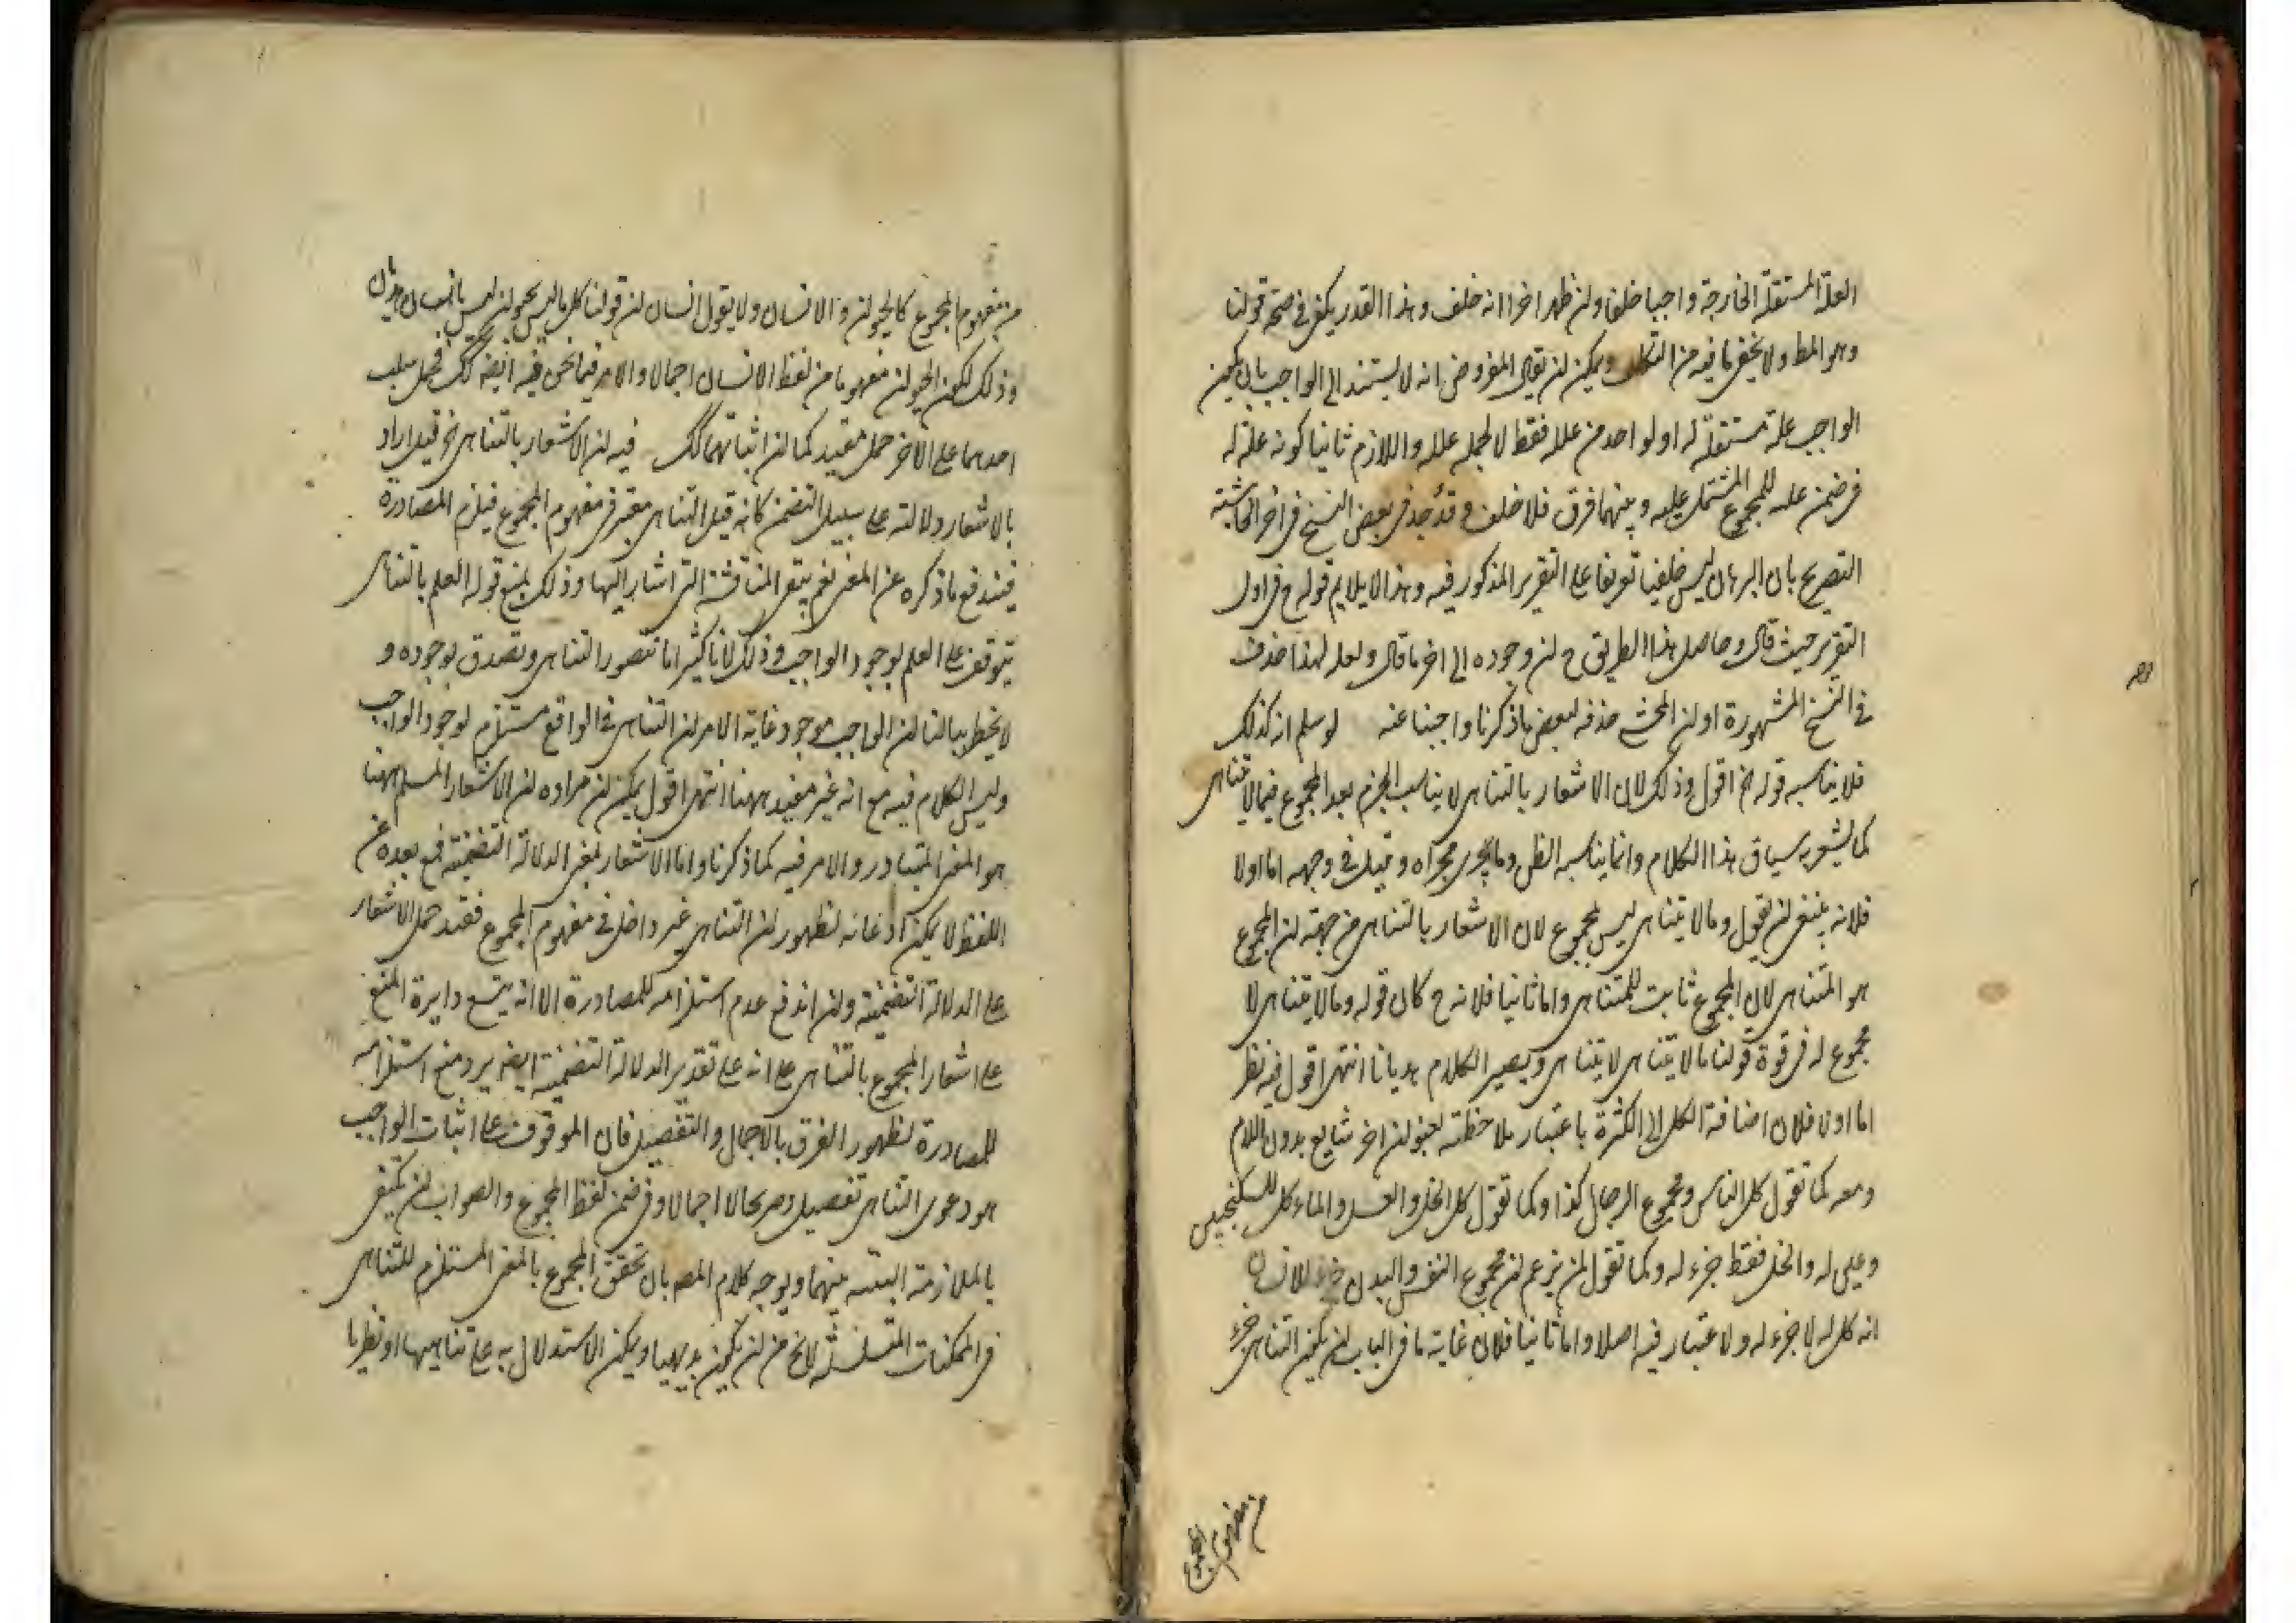 العلة المستقلة الخارجة واجبا خلفا ولن ظهر اخرا انه خلف وهذا القدر يكفى فى صحة قولنا
وهو المط ولا يخفى ما فيه من التكلف ويمكن لن يقال المفروض انه لا يستند الى الواجب بان يكون
الواجب علة مستقلة له او لواحد من علله فقط لا لجملة علله واللازم ثانيا كونه علة له
فى ضمن علله للمجموع المشتمل عليه وبينهما فرق فلا خلف وقد وجد فى بعض النسخ فى اخر الحاشية
التصريح بان البرهان ليس خلفيا تعريفا على التقرير المذكور فيه وهذا لا يلايم قوله ح فى اول
التقرير حيث قال وحاصل هذا الطريق ح لن وجوده الى اخر ما قال ولعله لهذا حذف
فى النسخ المشهورة او لن المحشى حذفه لبعض ما ذكرنا واجبنا عنه لو سلم انه كذلك
فلا يناسبه قوله الخ اقول وذلك لان الاشعار بالتناهى لا يناسب الجزم بعد المجموع فيما لا يتناهى
كما يشعر به سياق هذا الكلام وانما يناسبه الظن وما يجرى مجراه وقيل فى وجهه اما اولا
فلانه ينبغى لن يقول وما لا يتناهى ليس بمجموع لان الاشعار بالتناهى من جهة لن المجموع
هو المتناهى لان المجموع ثابت للمتناهى واما ثانيا فلانه ح كان قوله وما لا يتناهى لا
مجموع له فى قوة قولنا ما لا يتناهى لا يتناهى ويصير الكلام هديانا انتهى اقول فيه نظر
اما اولا فلان اضافة الكل الى الكثرة باعتبار ملاحظته بعنوان اخر شايع بدون اللام
ومعه كما تقول كل الناس ومجموع الرجال كذا وكما تقول كل الخل والعسل والماء كل للسكنجبين
وعلى له والخل فقط جزء له وكما تقول لمن يزعم لن مجموع النفس والبدن جزء للانسان
انه كل له لا جزء له ولا اعتبار فيه اصلا واما ثانيا فلان غاية ما فى الباب لن يكون التناهى جزء
من مفهوم المجموع
من مفهوم المجموع كالحيوان والانسان ولا يقول انسان لن قولنا كل ما ليس بحيوان ليس بانسان هديان
وذلك لكون الحيوان مفهوما من لفظ الانسان اجمالا والامر فيما نحن فيه ايضا كك فحمل سلب
احدهما على الاخر حمل مفيد كما لن اثباتهما كك فيه لن الاشعار بالتناهى الخ قيل اراد
بالاشعار دلالته على سبيل التضمن كانه قيل التناهى معتبر فى مفهوم المجموع فيلزم المصادرة
فيندفع ما ذكره عن المعنى نعم يبقى المناقشة التى اشار اليها وذلك بمنع قوله العلم بالتناهى
يتوقف على العلم بوجود الواجب وذلك لانا كثيرا ما نتصور التناهى ونصدق بوجوده و
لا يخطر ببالنا لن الواجب موجود غاية الامر لن التناهى فى الواقع مستلزم لوجود الواجب
وليس الكلام فيه مع انه غير مفيد ههنا انتهى اقول يمكن لن مراده لن الاشعار المسلم ههنا
هو المعنى المتبادر والامر فيه كما ذكرنا واما الاشعار بمعنى الدلالة التضمنية فمع بعده عن
اللفظ لا يمكن ادعائه لظهور لن التناهى غير داخل فى مفهوم المجموع فقيد حمل الاشعار
على الدلالة التضمنية ولن اندفع عدم استلزامه للمصادرة الا انه يتسع دايرة المنع
على اشعار المجموع بالتناهى على انه على تقدير الدلالة التضمنية ايضا يرد منع استلزامه
للمصادرة لظهور الفرق بالاجمال والتفصيل فان الموقوف على اثبات الواجب
هو دعوى التناهى تفصيلا وصريحا لا اجمالا وفى ضمن لفظ المجموع والصواب لن يكتفى
بالملازمة البينة بينهما ويوجه كلام المص بان تحقق المجموع بالمعنى المستلزم للتناهى
فى الممكنات المتسلسلة لا يخ من لن يكون بديهيا ويمكن الاستدلال به على تناهيها او نظريا